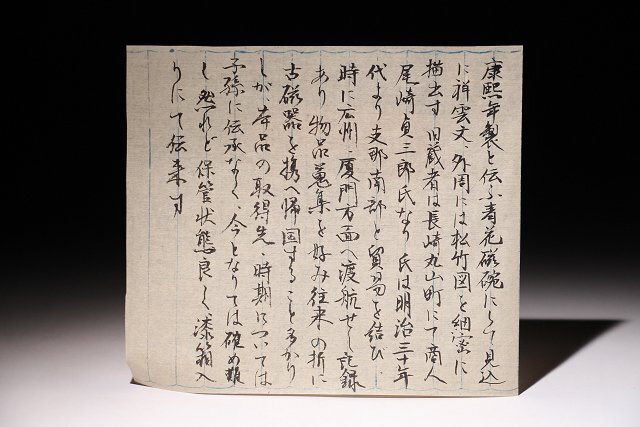 康熙年製と伝ふ青花磁碗にして見込
に祥雲文、外周には松竹図を細密に
描出す 旧蔵者は長崎丸山町にて商人
尾崎貞三郎氏なり 氏は明治三十年
代より支那南部と貿易を結び、
時に広州・厦門方面へ渡航せし記録
あり 物品蒐集を好み往来の折に
古磁器を携へ帰国すること多かり
しが、本品の取得先・時期については
子孫に伝承なく、今となりては確め難
し 然れど保管状態良く、漆箱入
りにて伝来す